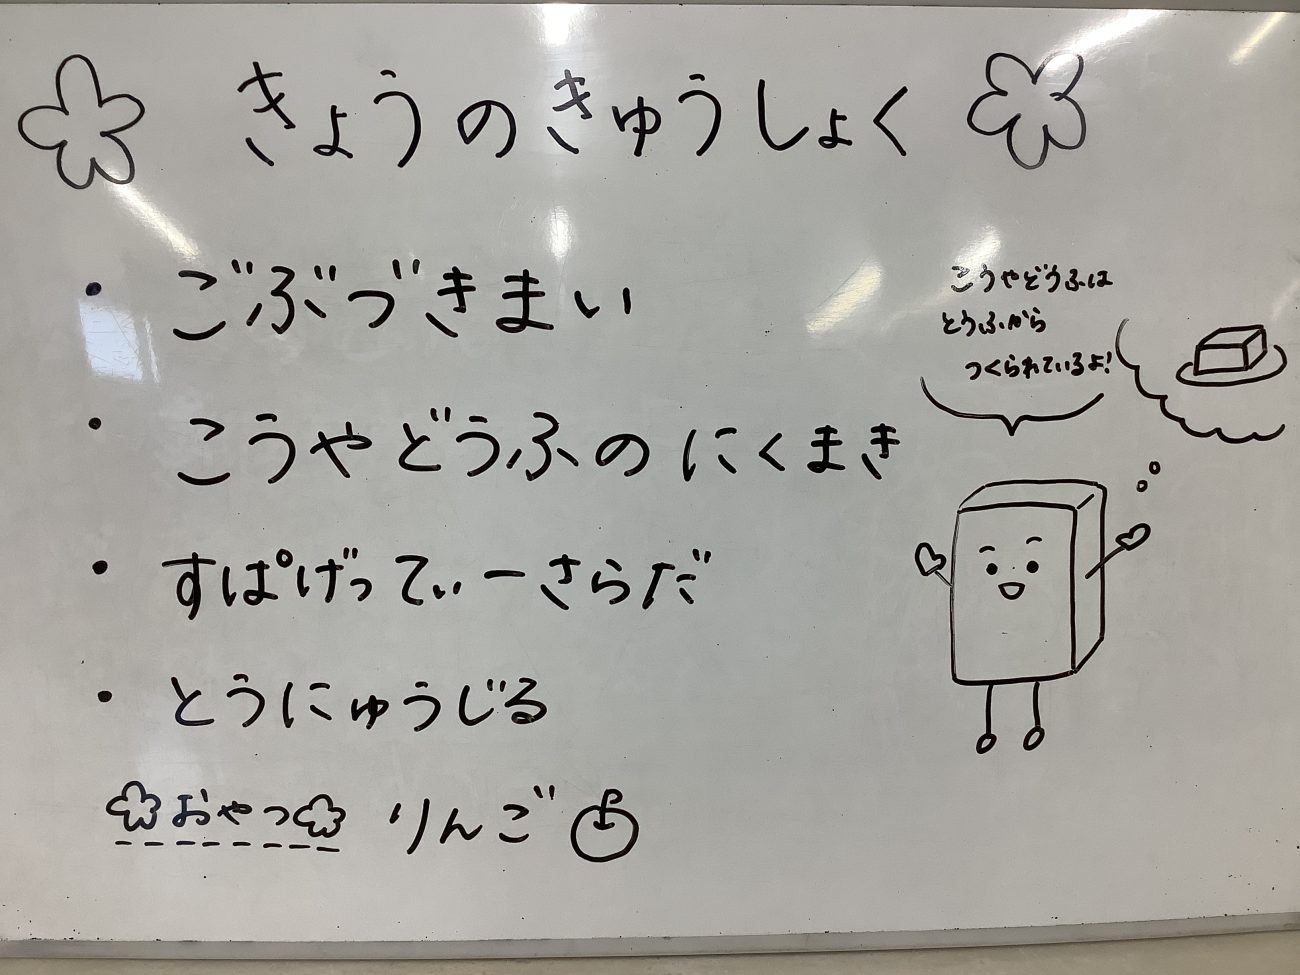 きょうのきゅうしょく
・ごぶづきまい
・こうやどうふのにくまき
・すぱげってぃーさらだ
・とうにゅうじる
おやつ りんご
こうやどうふは
とうふから
つくられているよ!